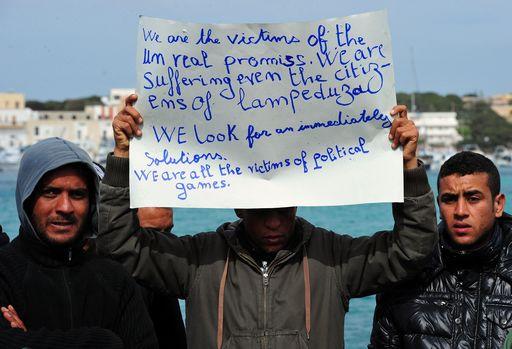 We are the victims of the
un real promiss. We are
suffering even the citiz-
ens of Lampeduza
WE look for an immediately
Solutions.
We are all the victims of political
games.